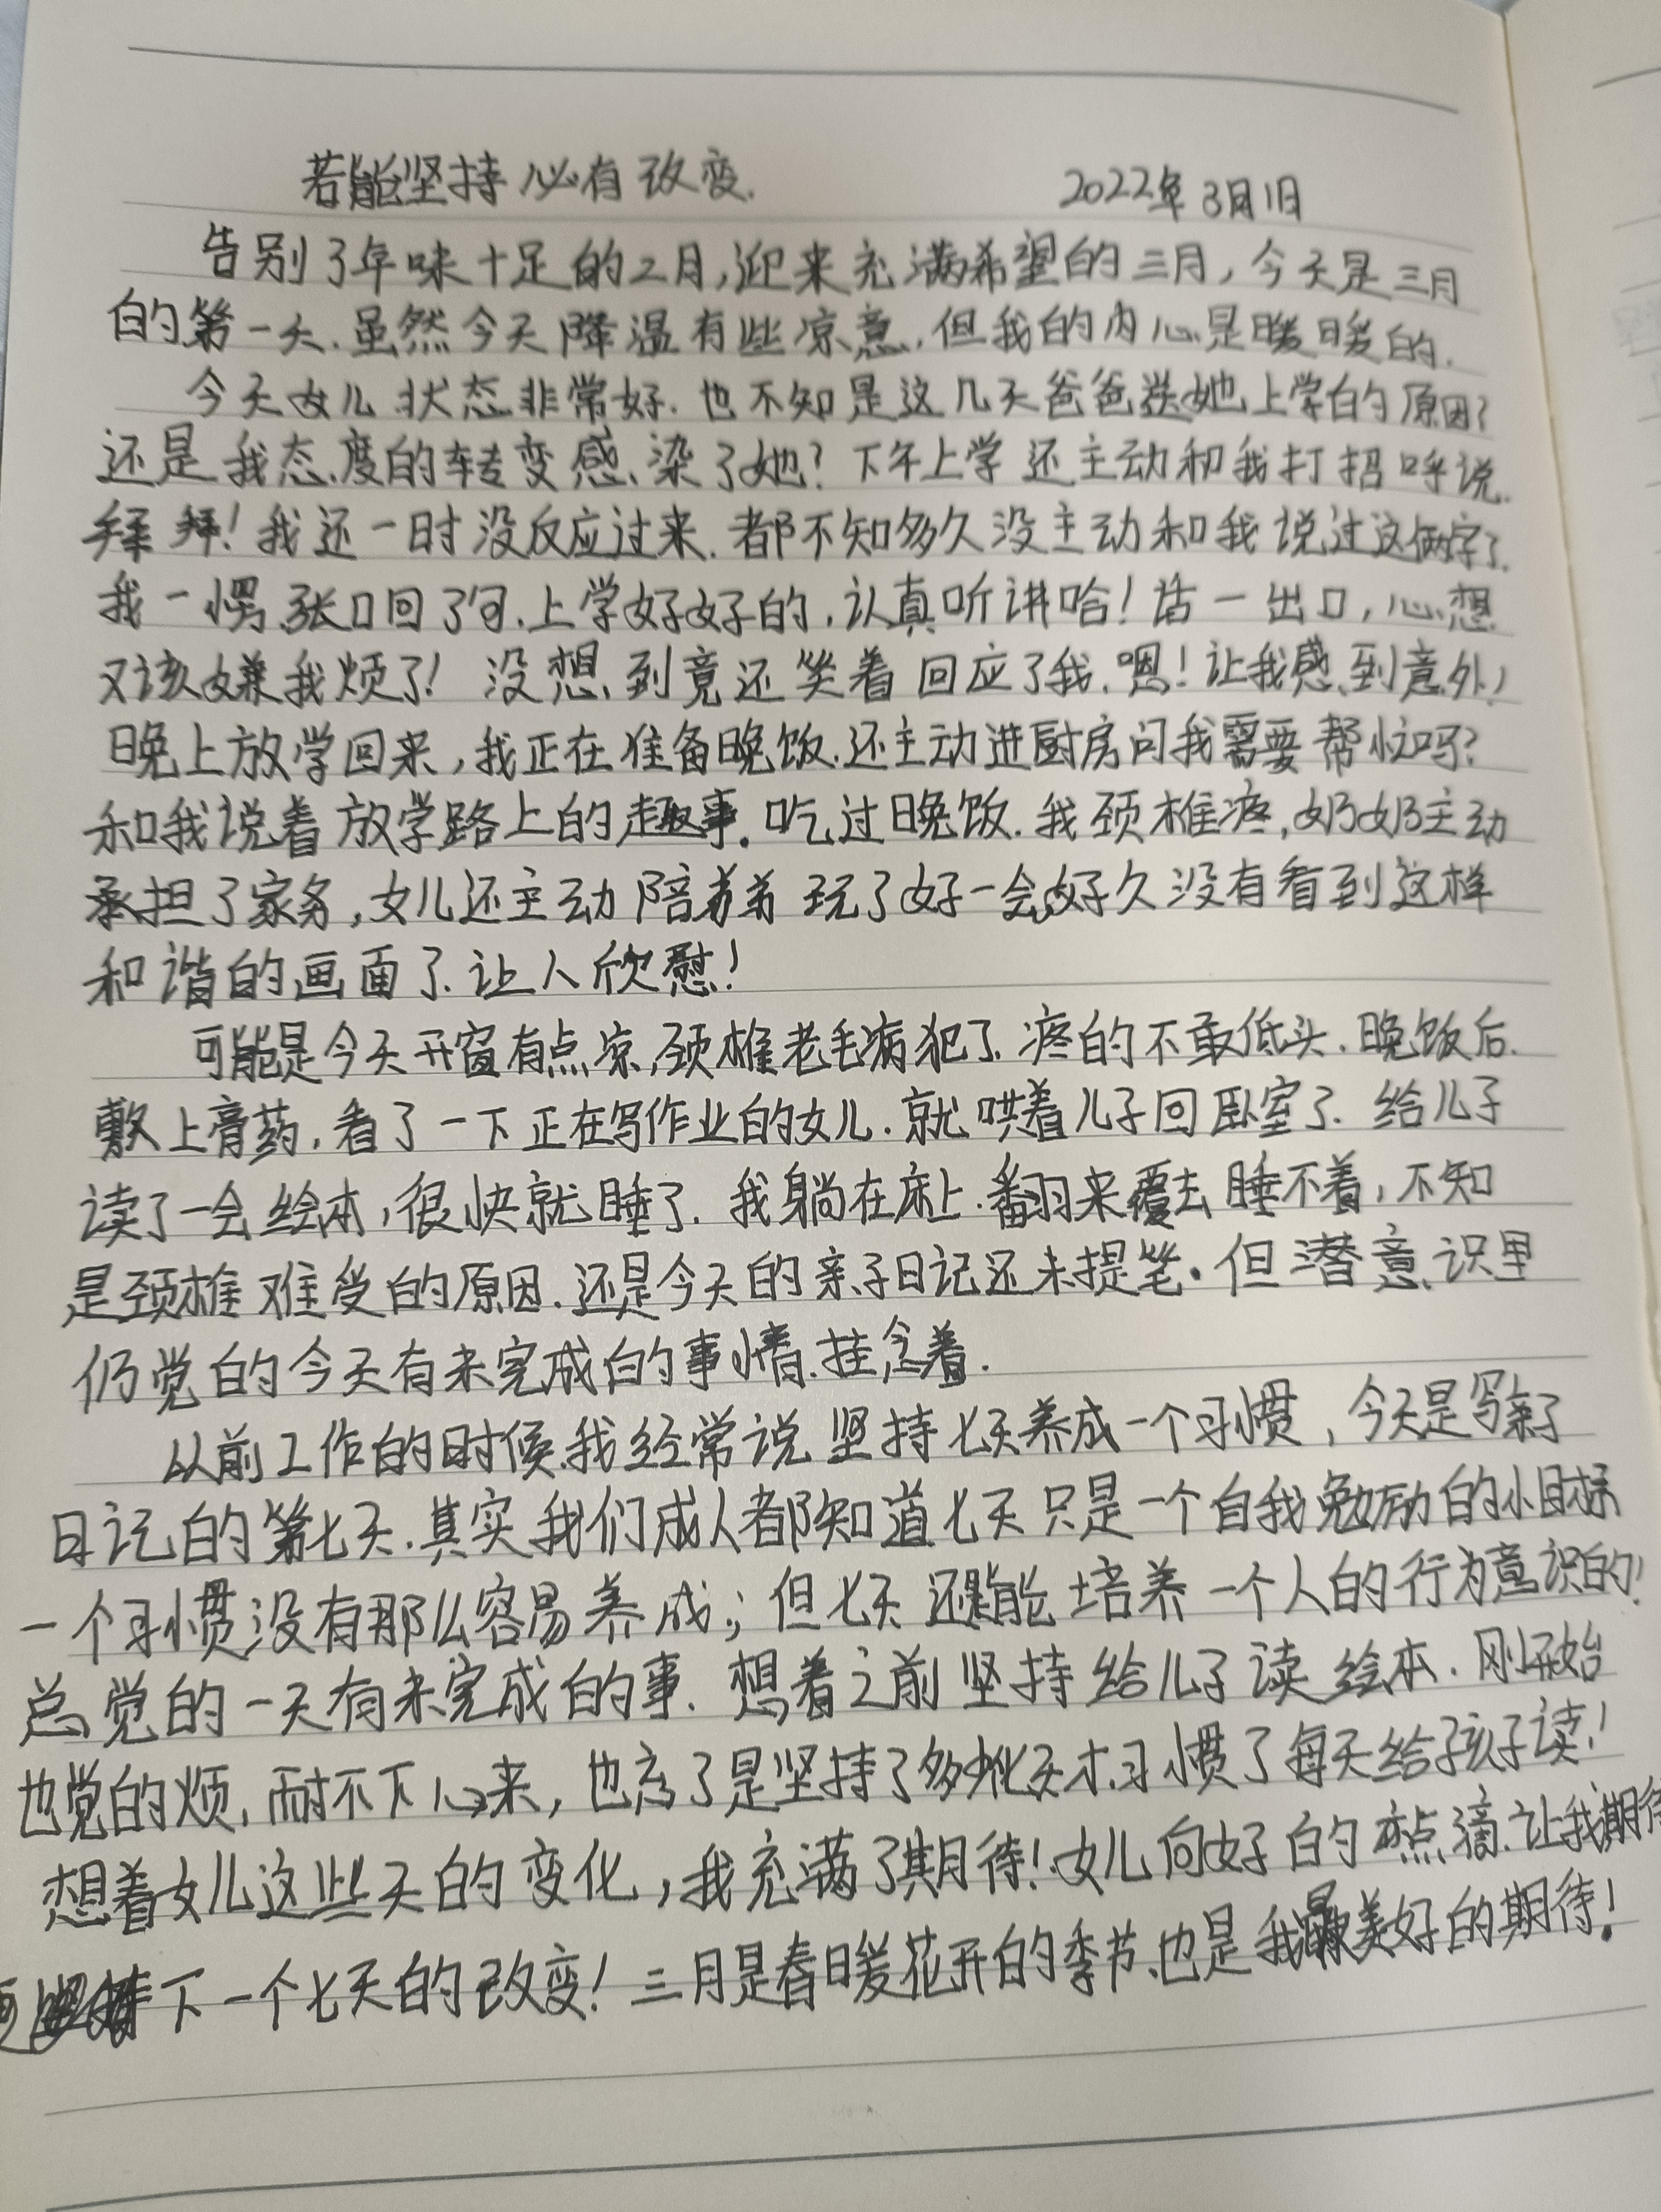 若能坚持 必有改变. 2022年3月1日
告别了年味十足的二月,迎来充满希望的三月,今天是三月
的第一天.虽然今天降温有些凉意,但我的内心是暖暖的.
今天女儿状态非常好.也不知是这几天爸爸送她上学的原因?
还是我态度的转变感染了她?下午上学还主动和我打招呼说.
拜拜!我还一时没反应过来.都不知多久没主动和我说过这俩字了.
我一愣,张口回了句.上学好好的,认真听讲哈!话一出口,心想
又该嫌我烦了!没想到竟还笑着回应了我.嗯!让我感到意外!
晚上放学回来,我正在准备晚饭.还主动进厨房问我需要帮忙吗?
和我说着放学路上的趣事.吃过晚饭.我颈椎疼,奶奶主动
承担了家务,女儿还主动陪弟弟玩了好一会,好久没有看到这样
和谐的画面了.让人欣慰!
可能是今天开窗有点凉,颈椎老毛病犯了.疼的不敢低头.晚饭后.
敷上膏药,看了一下正在写作业的女儿.就哄着儿子回卧室了.给儿子
读了一会绘本,很快就睡了.我躺在床上.翻来覆去睡不着,不知
是颈椎难受的原因.还是今天的亲子日记还未提笔.但潜意识里
仍觉的今天有未完成的事情.挂念着.
从前工作的时候.我经常说坚持七天养成一个习惯,今天是写亲子
日记的第七天.其实我们成人都知道七天只是一个自我勉励的小目标
一个习惯没有那么容易养成;但七天还是能培养一个人的行为意识的!
总觉的一天有未完成的事.想着之前坚持给儿子读绘本.刚开始
也觉的烦,耐不下心来,也忘了是坚持了多少个七天才习惯了每天给孩子读!
想着女儿这些天的变化,我充满了期待!女儿向好的点滴.让我期待
下一个七天的改变!三月是春暖花开的季节.也是我最美好的期待!